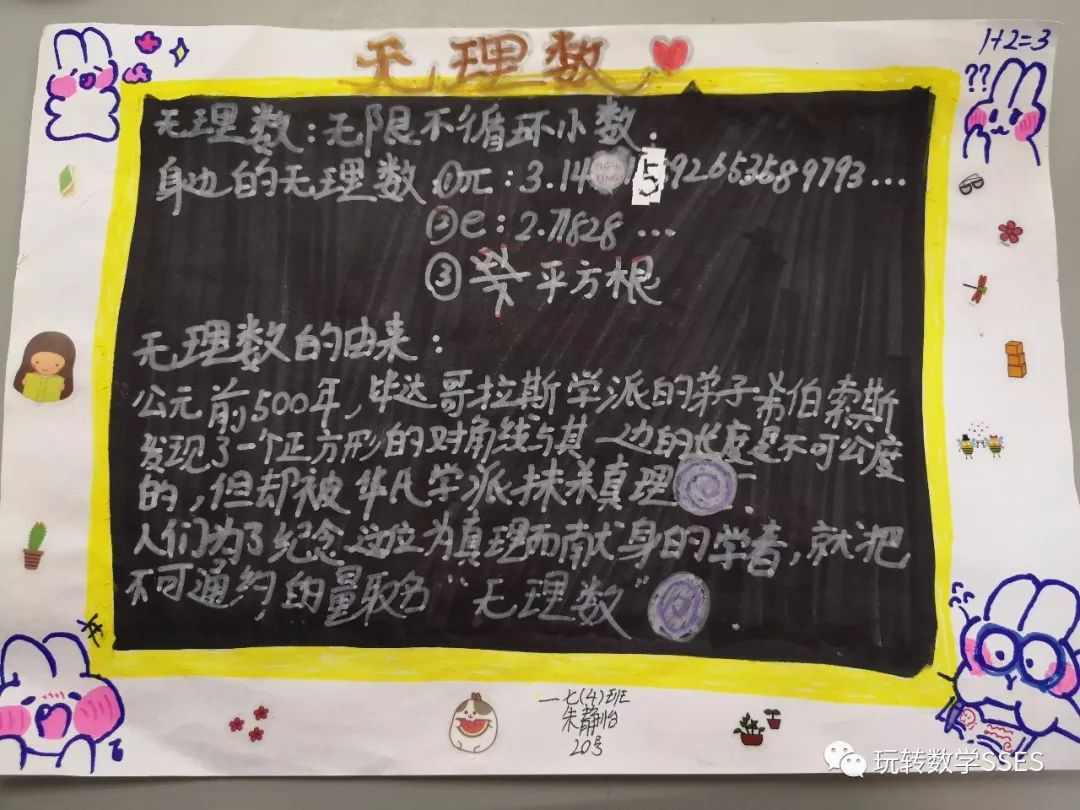 无理数
1+2=3
??
无理数:无限不循环小数.
身边的无理数:①π:3.14 592653589793...
②e:2.71828...
③ 平方根
无理数的由来:
公元前500年,毕达哥拉斯学派的弟子希伯索斯
发现了一个正方形的对角线与其一边的长度是不可公度
的,但却被毕氏学派抹杀真理
人们为了纪念这位为真理而献身的学者,就把
不可通约的量取名“无理数”.
七(4)班
朱静怡
20号
玩转数学SSES